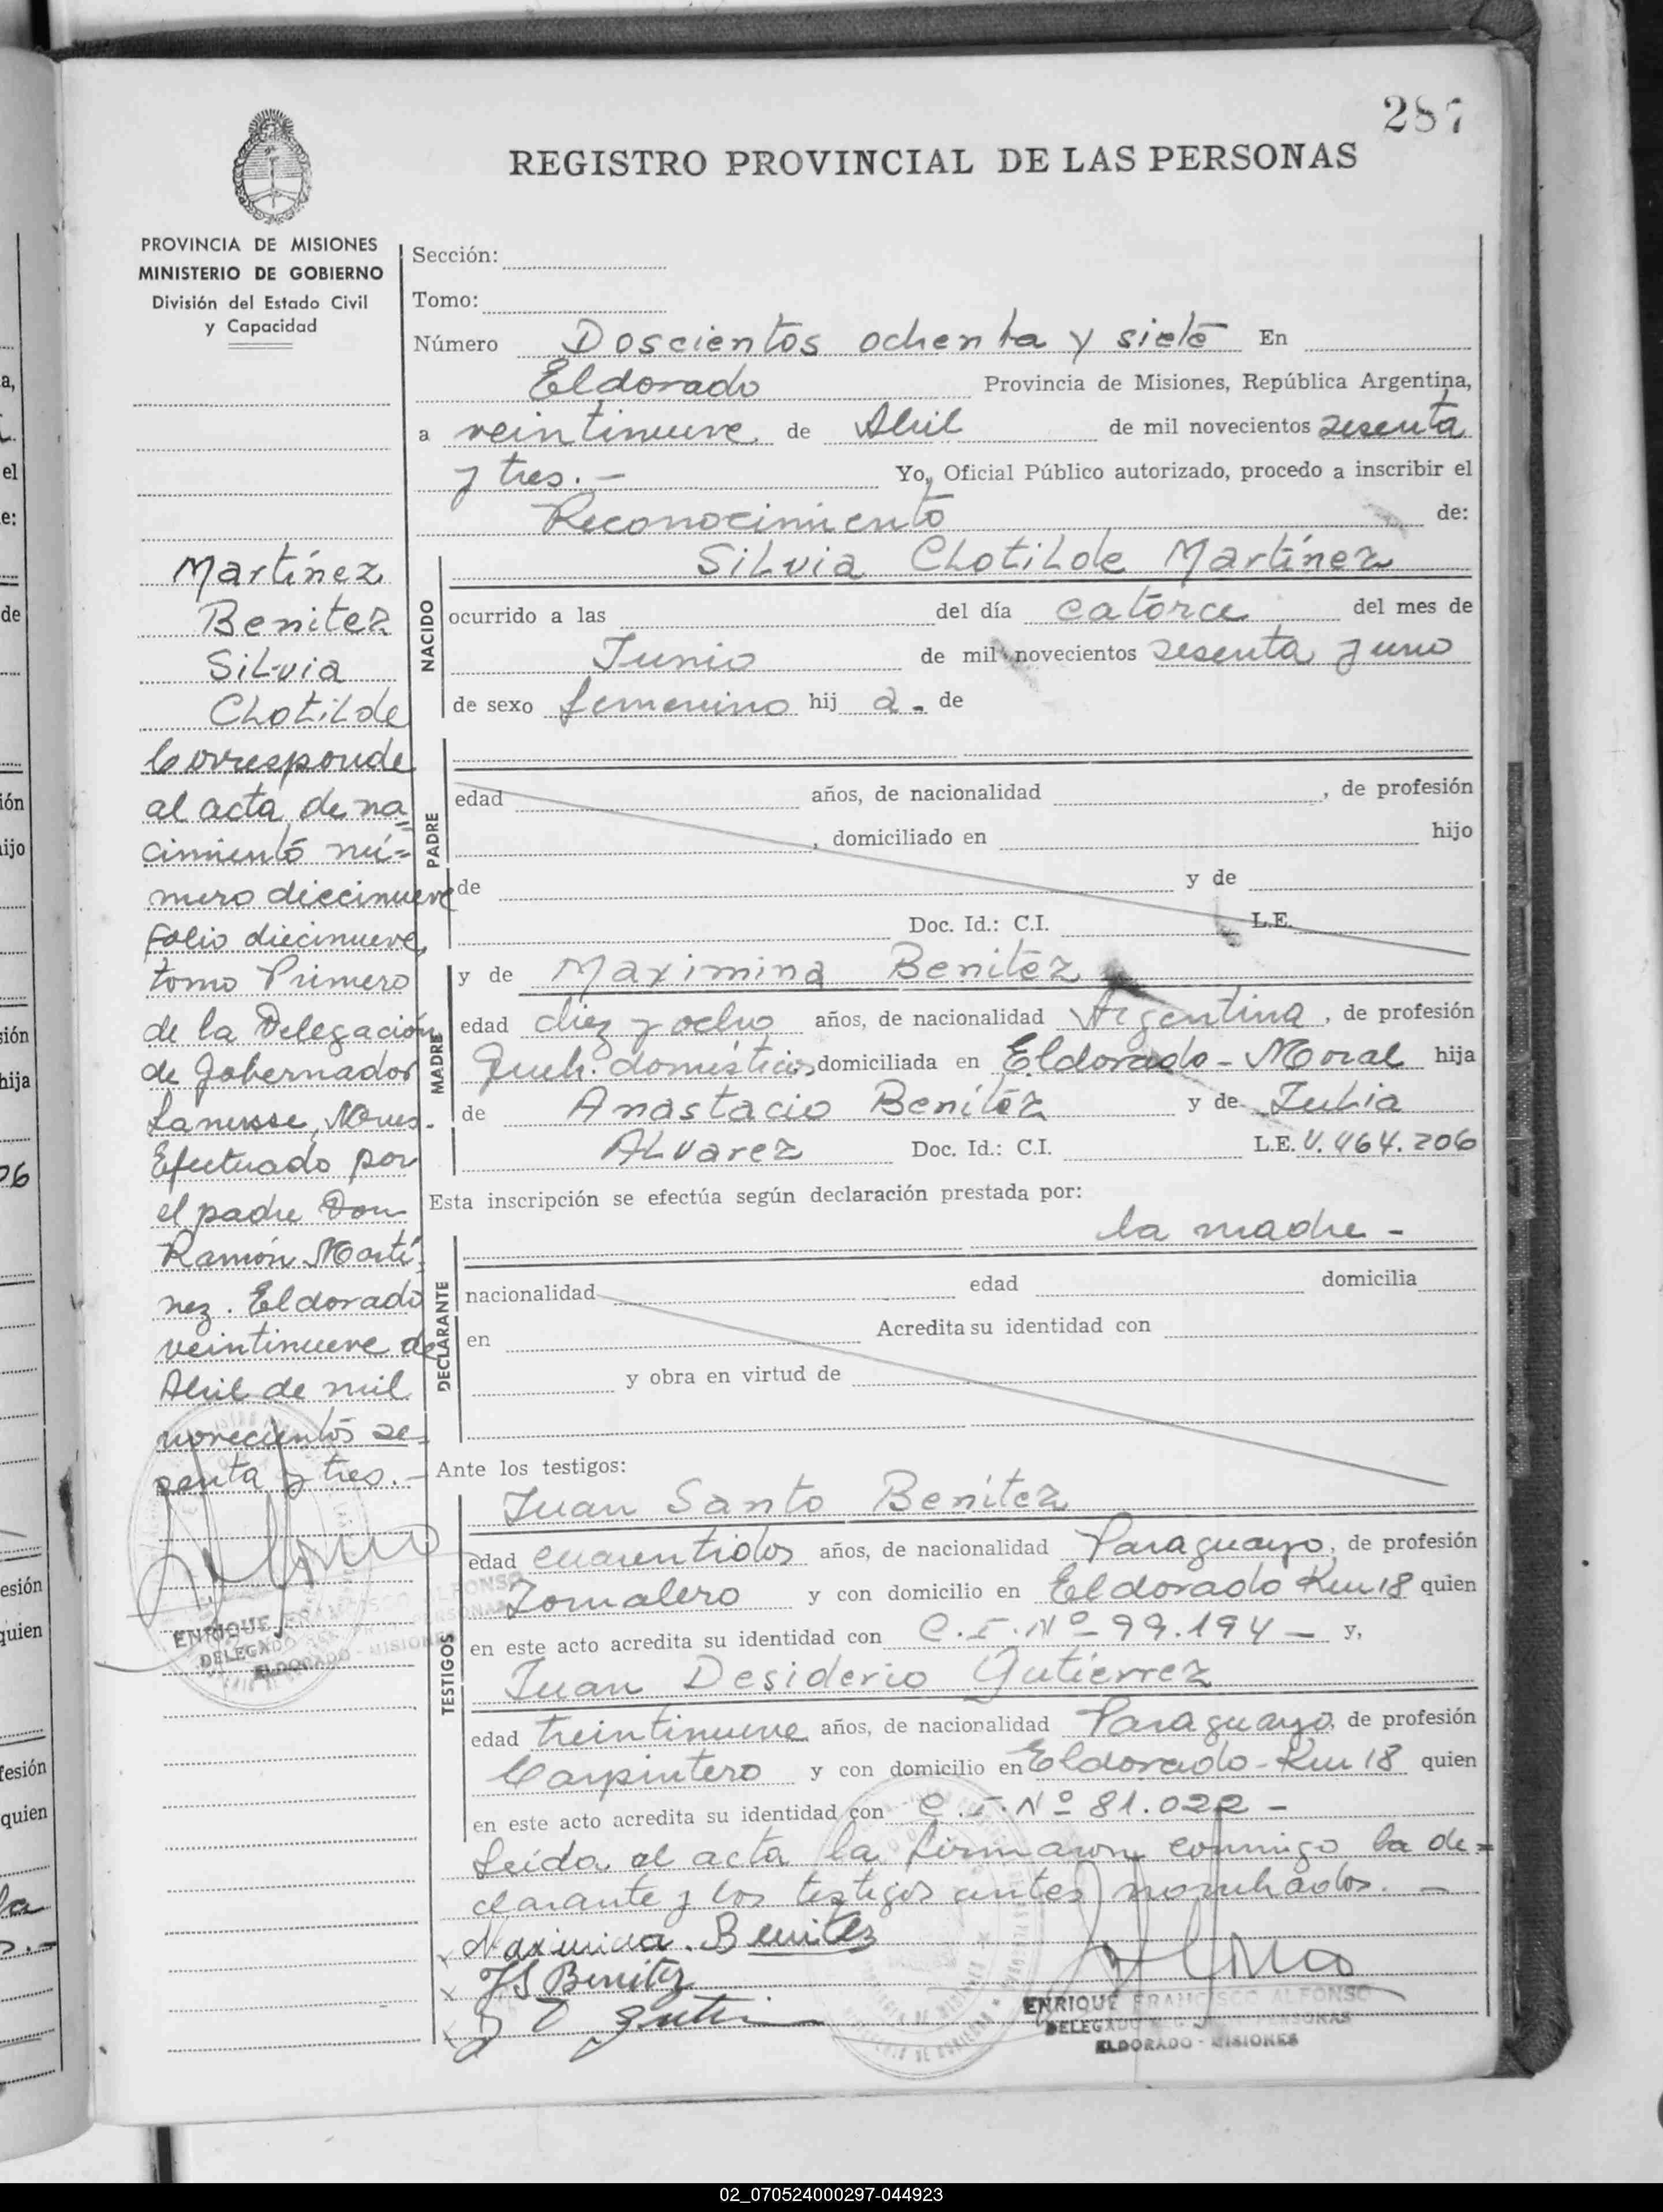 287
REGISTRO PROVINCIAL DE LAS PERSONAS
PROVINCIA DE MISIONES
MINISTERIO DE GOBIERNO
División del Estado Civil
y Capacidad
Martínez
Benitez
Silvia
Clotilde
Corresponde
al acta de na=
cimiento nú=
mero diecinueve
folio diecinueve,
tomo Primero
de la Delegación
de Gobernador
Lanusse, Mnes.
Efectuado por
el padre Don
Ramón Martí
nez. Eldorado
veintinueve de
Abril de mil
novecientos se=
senta y tres.-
ENRIQUE FRANCISCO ALFONSO
DELEGADO
ELDORADO - MISIONES
Sección:
Tomo:
Número Doscientos ochenta y siete En
Eldorado Provincia de Misiones, República Argentina,
a veintinueve de Abril de mil novecientos sesenta
y tres.- Yo, Oficial Público autorizado, procedo a inscribir el
Reconocimiento de:
NACIDO
Silvia Clotilde Martínez
ocurrido a las del día catorce del mes de
Junio de mil novecientos sesenta y uno
de sexo femenino hij a.- de
PADRE
edad años, de nacionalidad , de profesión
, domiciliado en hijo
de y de
Doc. Id.: C.I. L.E.
MADRE
y de Maximina Benitez
edad diez y ocho años, de nacionalidad Argentina, de profesión
Queh. domésticos, domiciliada en Eldorado - Moral hija
de Anastacio Benitez y de Julia
Alvarez Doc. Id.: C.I. L.E. 4.464.206
Esta inscripción se efectúa según declaración prestada por:
la madre -
DECLARANTE
nacionalidad edad domicilia
en Acredita su identidad con
y obra en virtud de
Ante los testigos:
TESTIGOS
Juan Santo Benitez
edad cuarentidos años, de nacionalidad Paraguayo, de profesión
Jornalero y con domicilio en Eldorado Km 18 quien
en este acto acredita su identidad con C.I. Nº 99.194 - y,
Juan Desiderio Gutierrez
edad treintinueve años, de nacionalidad Paraguayo, de profesión
Carpintero y con domicilio en Eldorado - Km 18 quien
en este acto acredita su identidad con C.I. Nº 81.022 -
Leída el acta la firmaron conmigo la de=
clarante y los testigos antes nombrados. -
Maximina. Benitez
JS Benitez
ENRIQUE FRANCISCO ALFONSO
DELEGADO REG. PERSONAS
ELDORADO - MISIONES
02_070524000297-044923